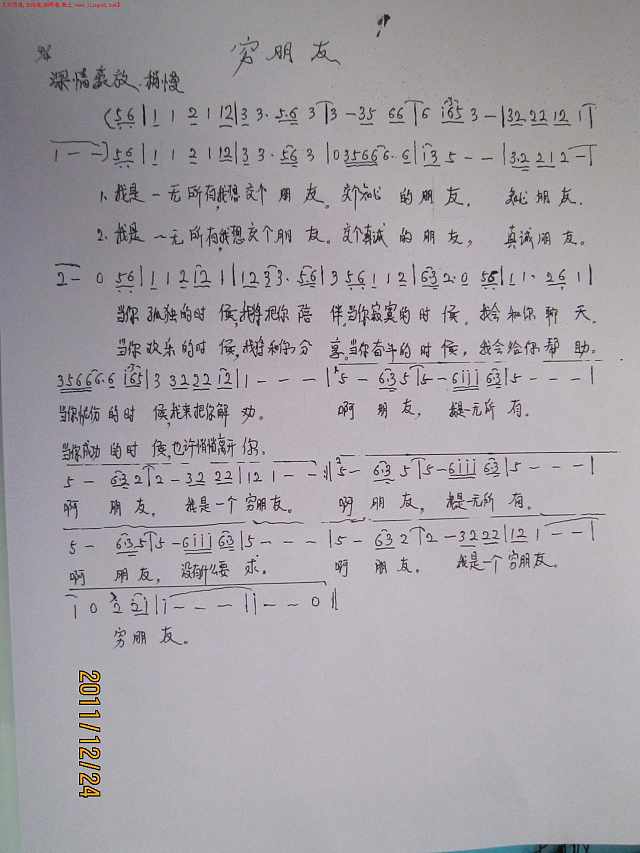 穷朋友
深情豪放、稍慢
(56|1 1 2 1 12|3 3· 56 3|3 - 35 66|6 i65 3 -|32 22 12 1|
1 - -)56|1 1 2 1 12|3 3· 56 3|0 3566 6· 6|i3 5 - -|3·2 2 1 2 -|
1、我是一无所有,我想交个朋友。交个知心的朋友。知心朋友。
2、我是一无所有,我想交个朋友。交个真诚的朋友,真诚朋友。
2 - 0 56|1 1 2 12 1|12 3 3· 56|3 56 1 1 2|63 2· 0 56|1 1· 26 1|
当你孤独的时候,我将把你陪伴,当你寂寞的时候,我会和你聊天。
当你欢乐的时候,我将和你分享。当你奋斗的时候,我会给你帮助。
3566 6· 6 i65|3 32 22 12|1 - - -|5 - 63 5|5 - 6iii 63|5 - - -|
当你忧伤的时候,我来把你解劝。啊朋友,我是一无所有。
当你成功的时候,也许悄悄离开你。
5 - 63 2|2 - 32 22|12 1 - -:|5 - 63 5|5 - 6iii 63|5 - - -|
啊朋友。我是一个穷朋友。啊朋友,我是一无所有。
5 - 63 5|5 - 6iii 63|5 - - -|5 - 63 2|2 - 32 22|12 1 - -|
啊朋友,没有什么要求。啊朋友。我是一个穷朋友。
1 0 2 2i|i - - -|i - - 0||
穷朋友。
2011/12/24